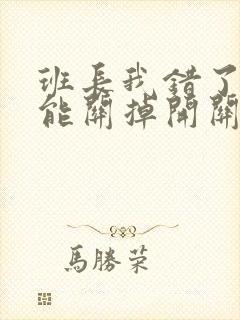 班長我錯了
能關掉開關
馬勝荣